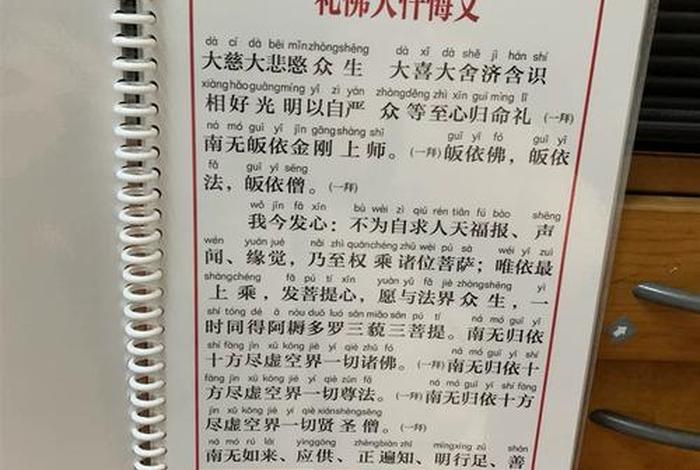 礼佛大忏悔文
dà cí dà bēi mǐnzhòngshēng dà xǐ dà shě jì hán shí
大慈大悲愍众生 大喜大舍济含识
xiànghǎoguāngmíng yǐ zì yán zhòngděng zhì xīn guī mìng lǐ
相好光明以自严 众等至心归命礼 (一拜)
ná mó guī yī jīn gāngshàng shī guī yī fó guī yī
南无皈依金刚上师。(一拜)皈依佛,皈依
fǎ guī yī sēng
法,皈依僧。(一拜)
wǒ jīn fā xīn bù wèi zì qiú rén tiān fú bào shēng
我今发心:不为自求人天福报、声
wén yuán jué nǎi zhì quánchéng zhū wèi pú sà wéi yī zuì
闻、缘觉,乃至权乘诸位菩萨;唯依最
shàngchéng fā pú tí xīn yuàn yǔ fǎ jiè zhòngshēng yì
上乘,发菩提心,愿与法界众生,一
shí tóng dé ā nòu duō luó sān miǎo sān pú tí ná mó guī yī
时同得阿耨多罗三藐三菩提。南无归依
shí fāng jìn xū kōng jiè yí qiè zhū fó ná mó guī yī shí
十方尽虚空界一切诸佛。(一拜)南无归依十
fāng jìn xū kōng jiè yí qiè zūn fǎ ná mó guī yī shí fāng
方尽虚空界一切尊法。(一拜)南无归依十方
jìn xū kōng jiè yí qiè xiánshèngsēng
尽虚空界一切贤圣僧。(一拜)
ná mó rú lái yìnggōng zhèngbiàn zhī míngxíng zú shàn
南无如来、应供、正遍知、明行足、善